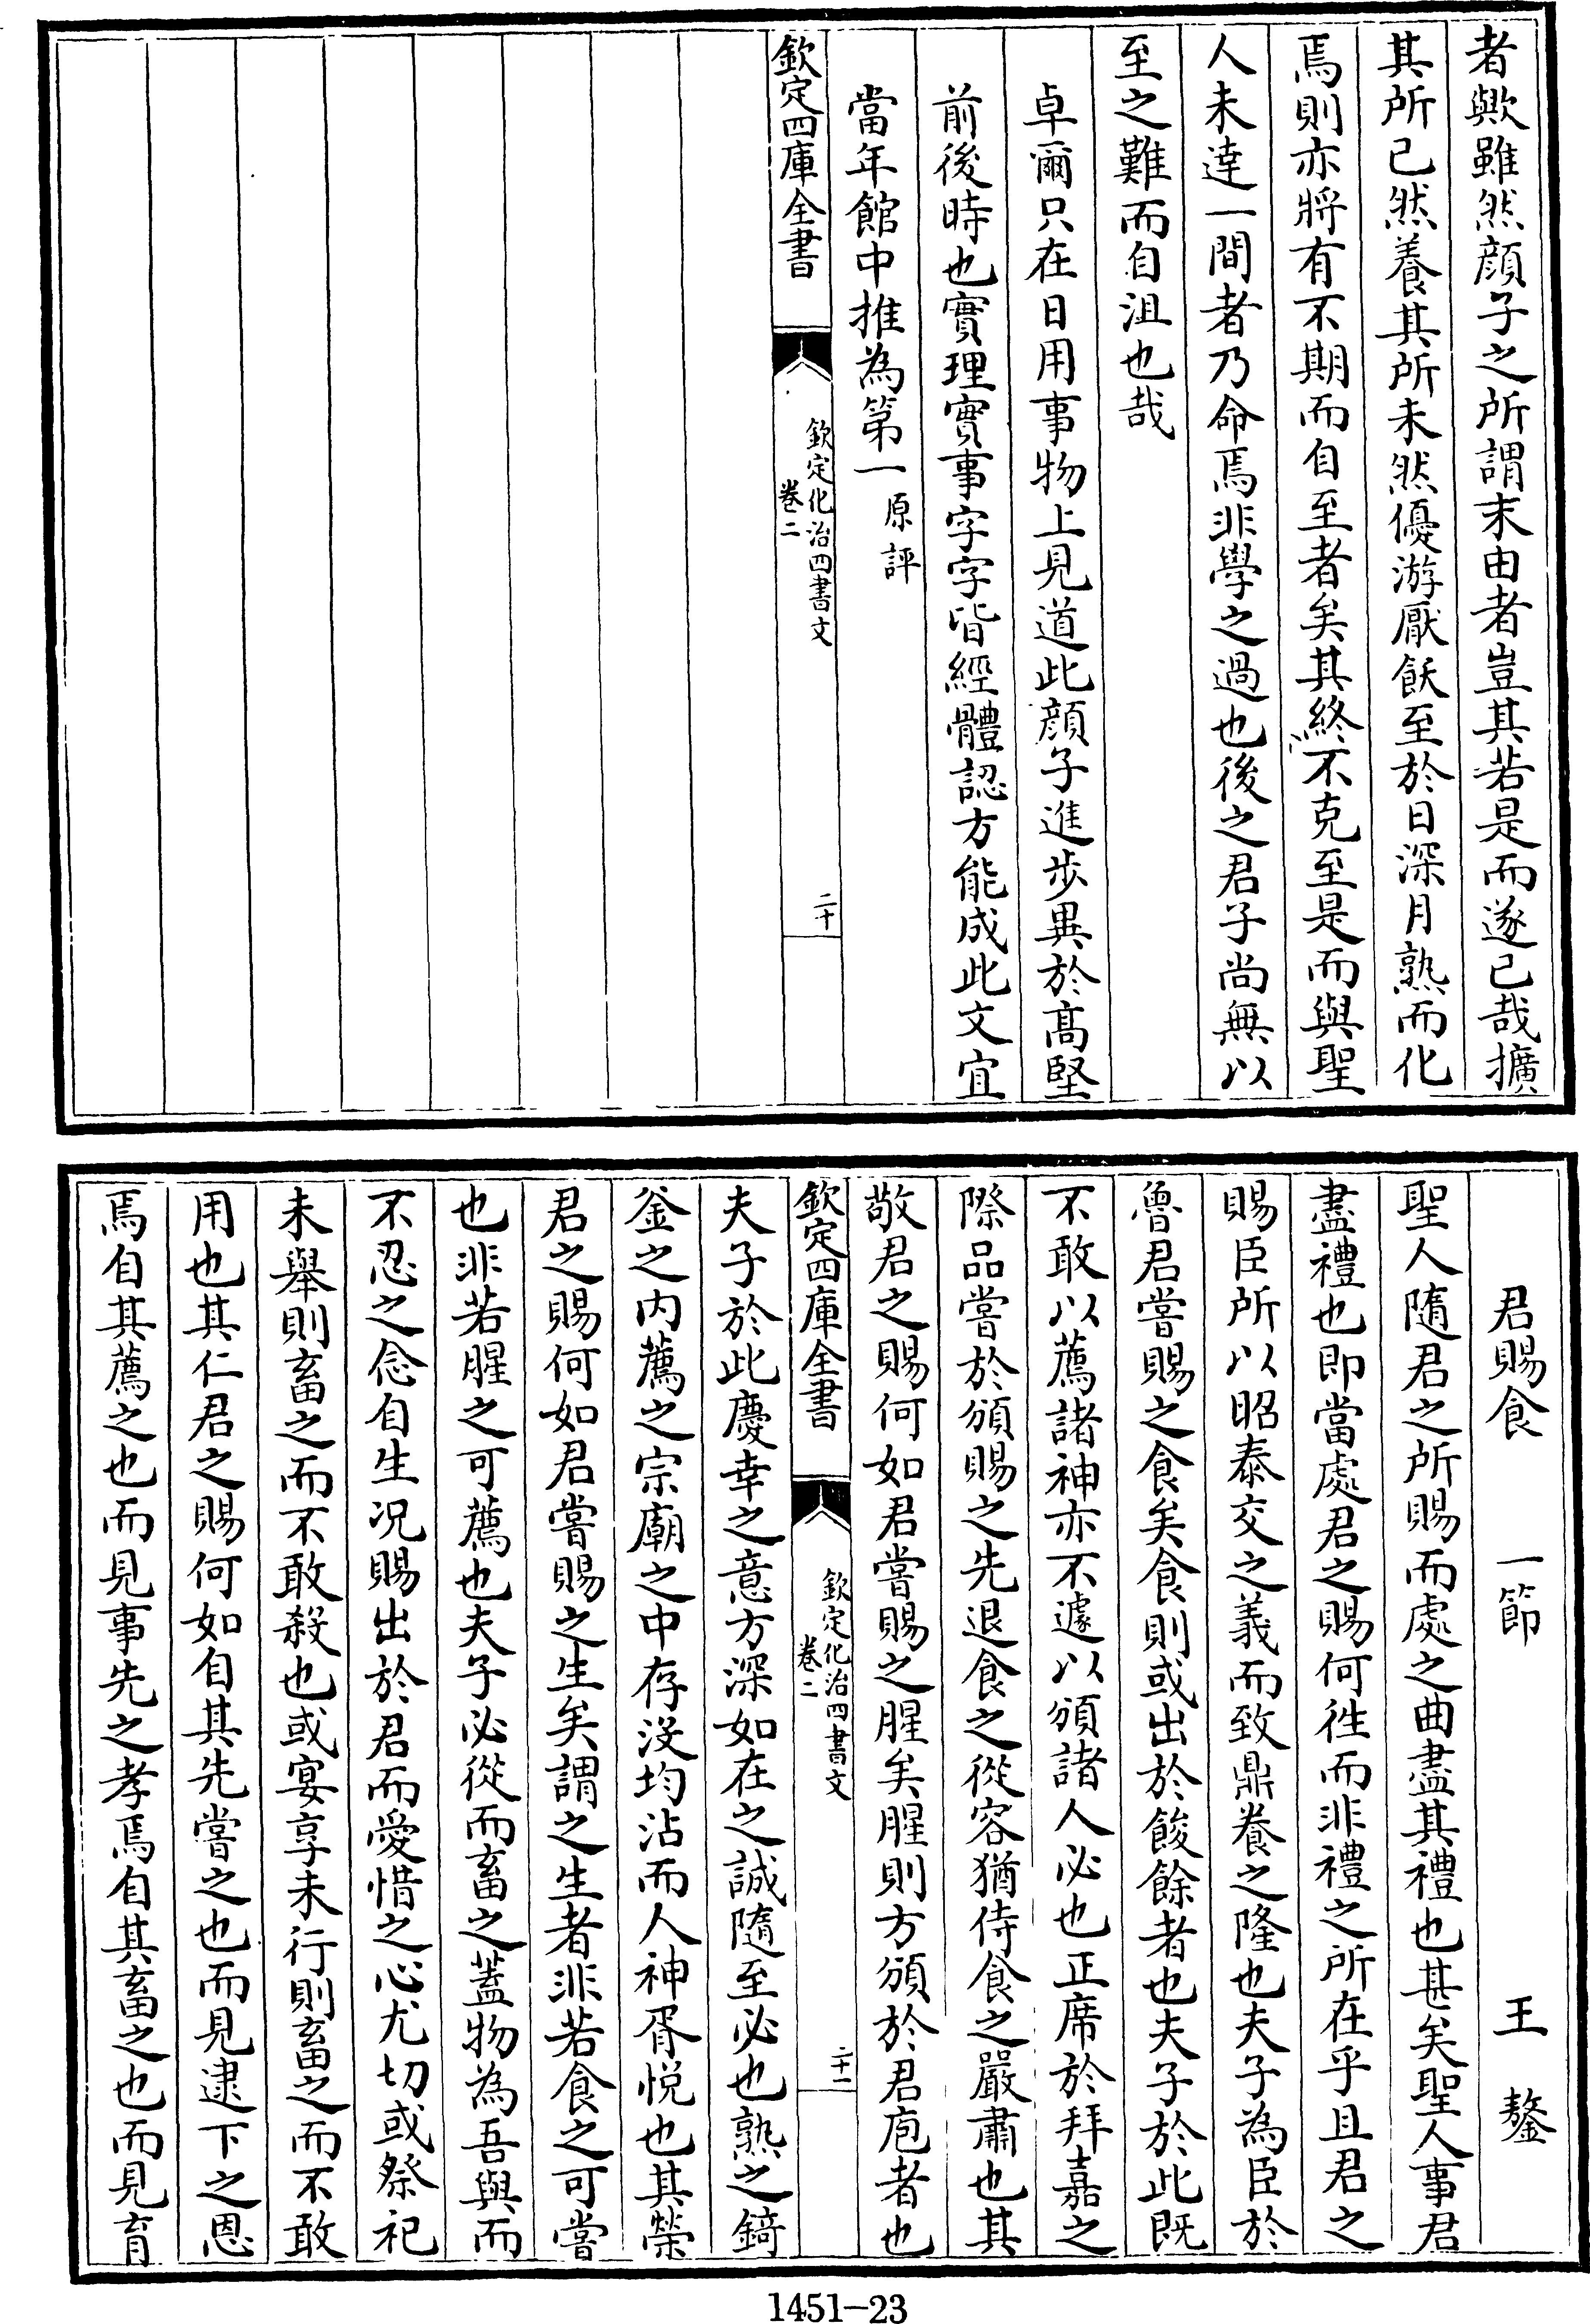 者歟雖然顔子之所謂末由者豈其若是而遂已哉擴
其所已然養其所未然優游厭飫至於日深月熟而化
焉則亦將有不期而自至者矣其終不克至是而與聖
人未達一間者乃命焉非學之過也後之君子尚無以
至之難而自沮也哉
卓爾只在日用事物上見道此顔子進步異於髙堅
前後時也實理實事字字皆經體認方能成此文宜
當年館中推為第一原評
欽定四庫全書
欽定化治四書文
卷二
二十
君賜食 一節 王鏊
聖人隨君之所賜而處之曲盡其禮也甚矣聖人事君
盡禮也即當處君之賜何徃而非禮之所在乎且君之
賜臣所以昭泰交之義而致鼎養之隆也夫子為臣於
魯君嘗賜之食矣食則或出於餕餘者也夫子於此既
不敢以薦諸神亦不遽以頒諸人必也正席於拜嘉之
際品嘗於頒賜之先退食之從容猶侍食之嚴肅也其
敬君之賜何如君嘗賜之腥矣腥則方頒於君庖者也
欽定四庫全書
欽定化治四書文
卷二
二十一
夫子於此慶幸之意方深如在之誠隨至必也熟之錡
釜之内薦之宗廟之中存沒均沾而人神胥悦也其榮
君之賜何如君嘗賜之生矣謂之生者非若食之可嘗
也非若腥之可薦也夫子必從而畜之蓋物為吾與而
不忍之念自生况賜出於君而愛惜之心尤切或祭祀
未舉則畜之而不敢殺也或宴享未行則畜之而不敢
用也其仁君之賜何如自其先嘗之也而見逮下之恩
焉自其薦之也而見事先之孝焉自其畜之也而見育
1451-23